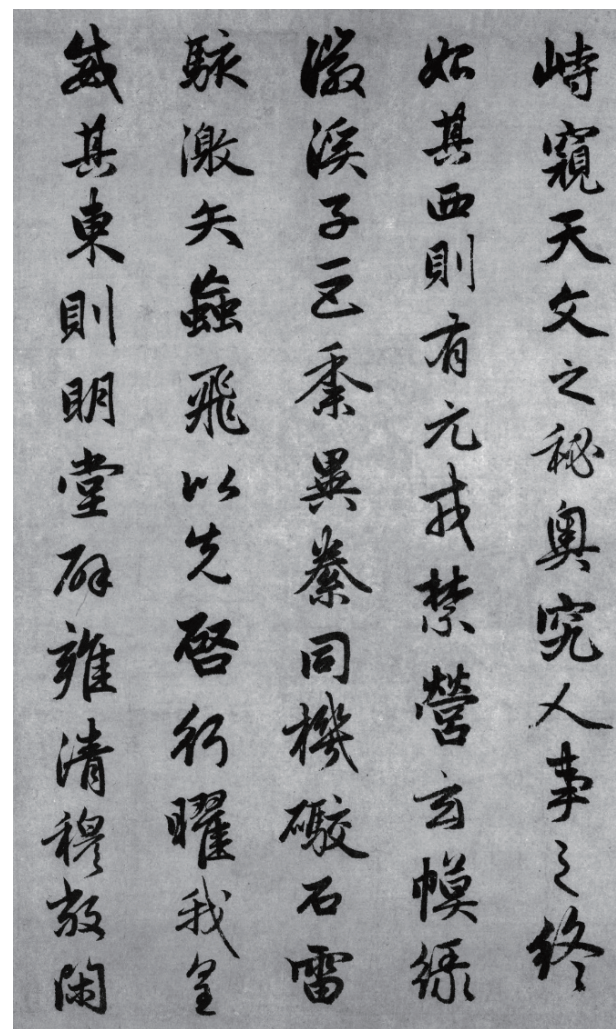 峙窺天文之秘奧究人事之終
始其西則有元戎禁營玄幙綠
徽溪子巨黍異絭同機礮石雷
駭激矢蝱飛以先啓行曜我皇
威其東則明堂辟雍清穆敞閑